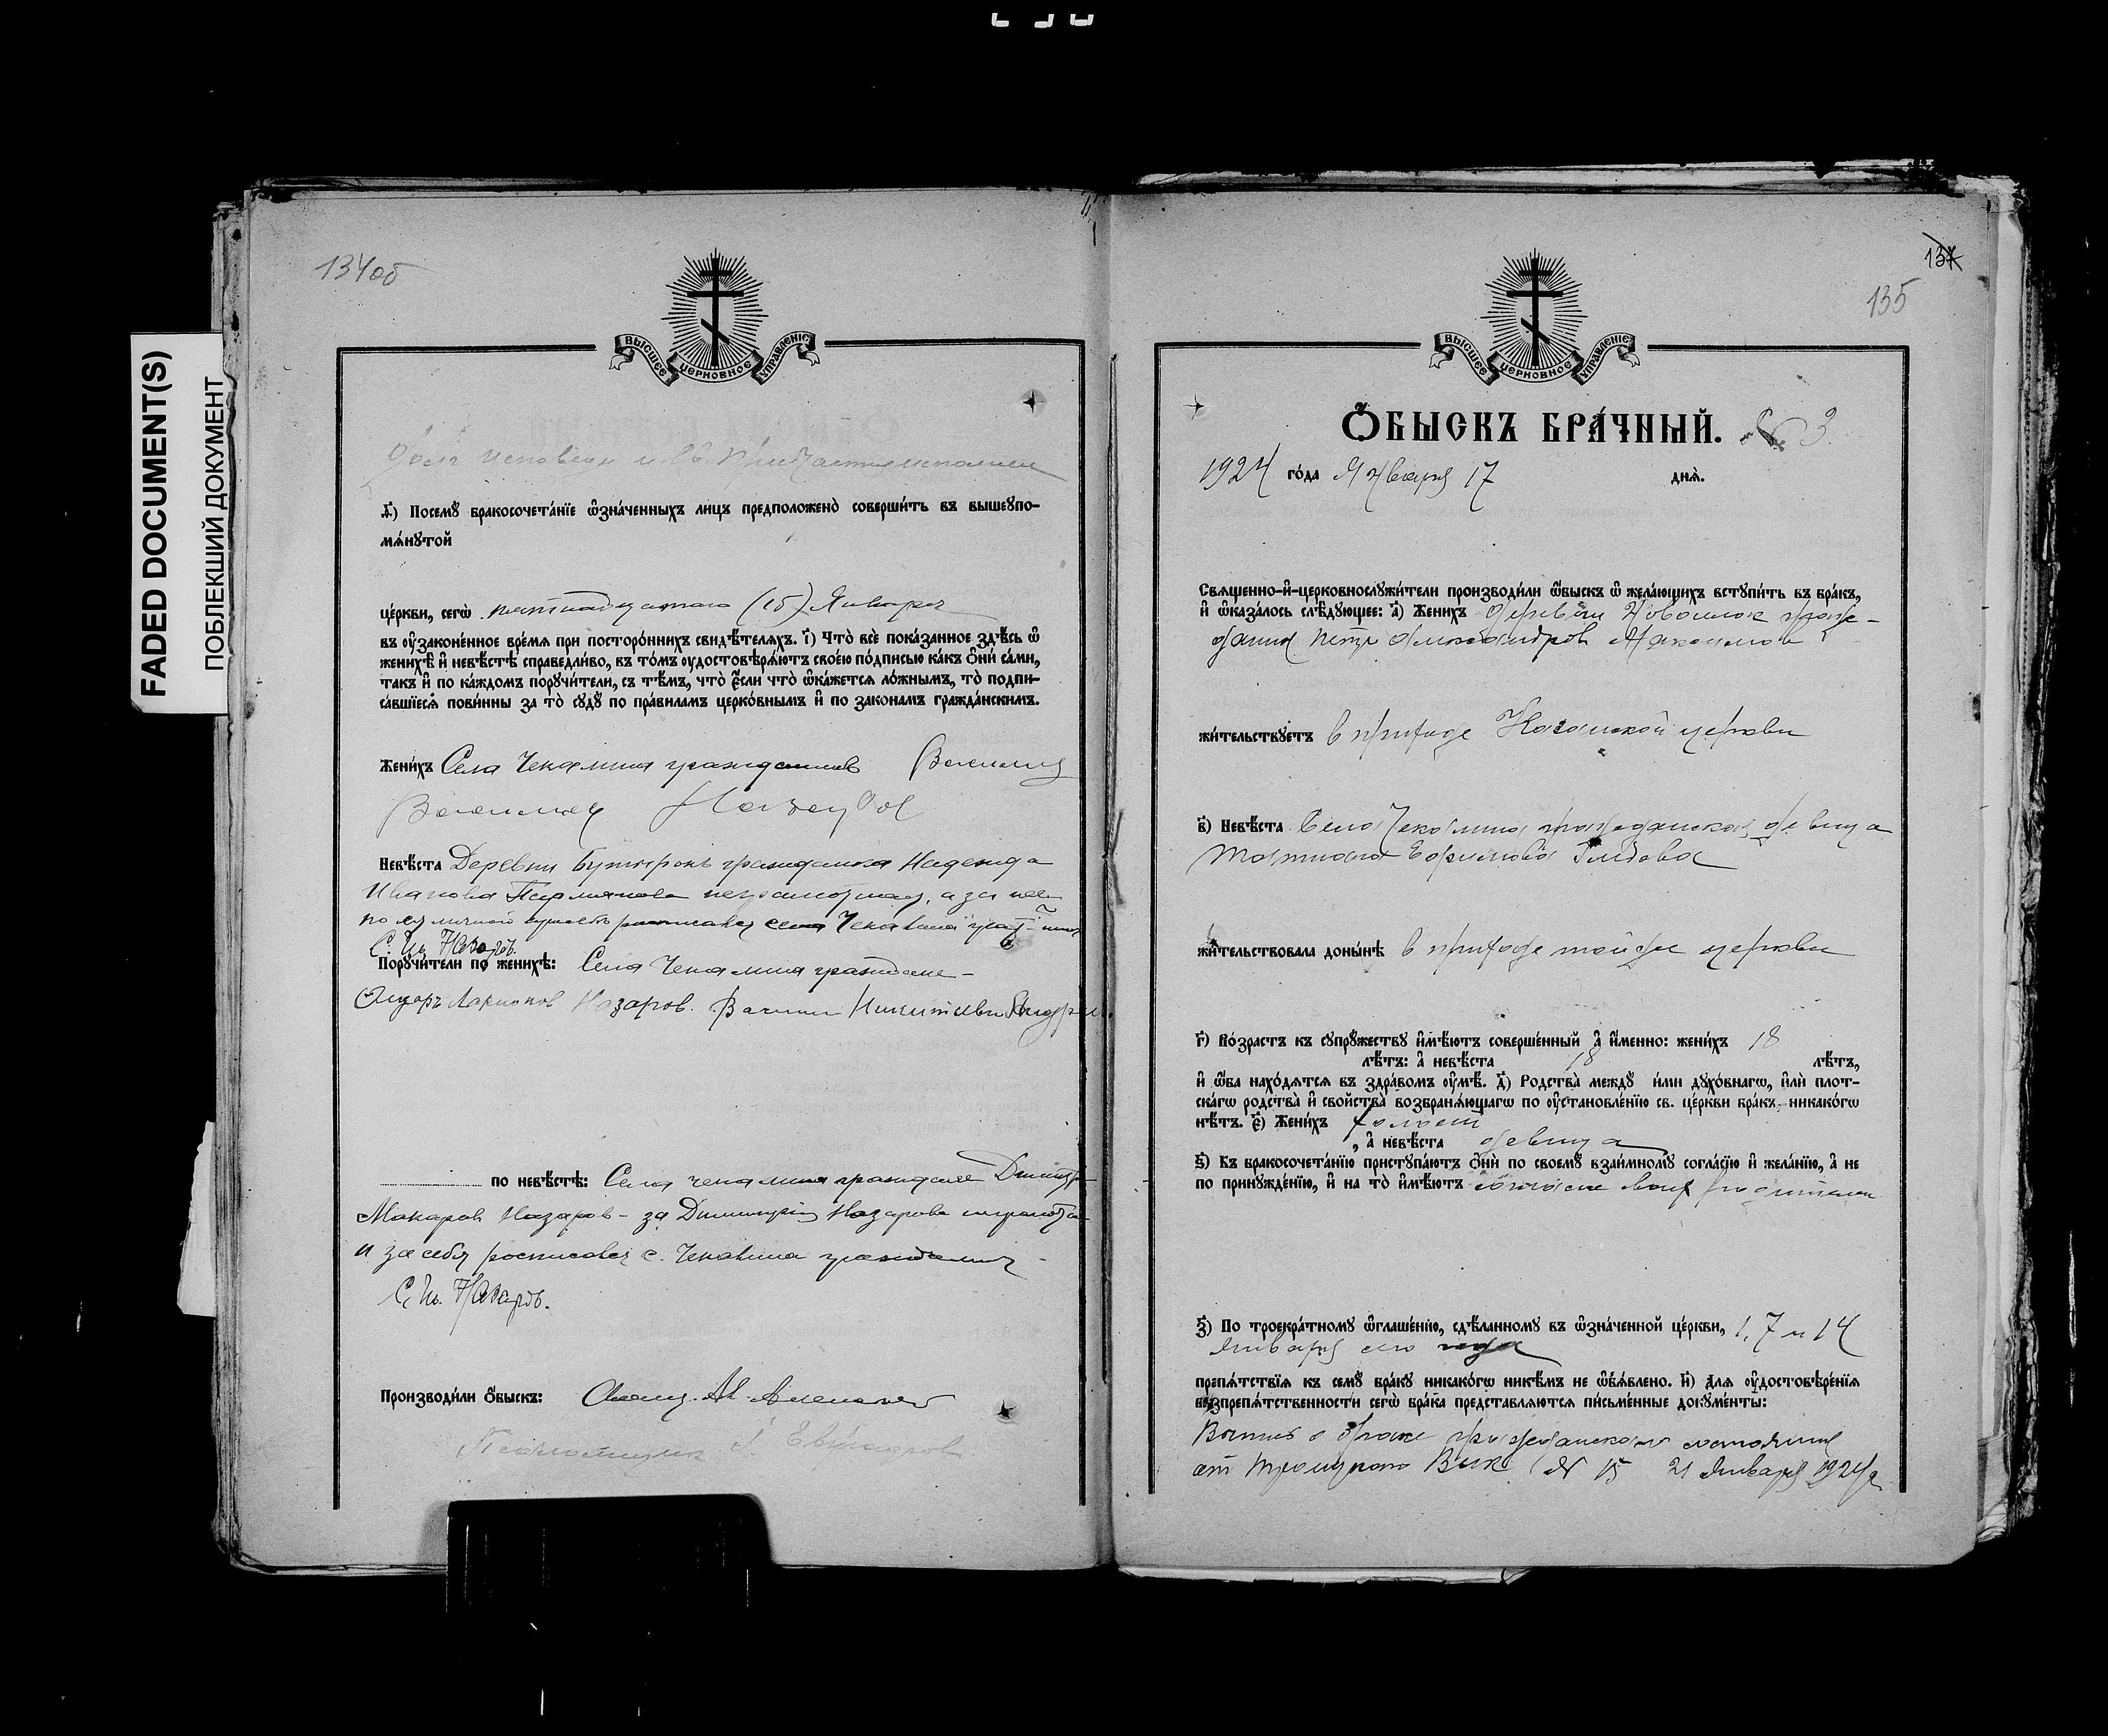 FADED DOCUMENT(S)
ПОБЛЕКШИЙ ДОКУМЕНТ
134об
ВЫСШЕЕ ЦЕРКОВНОЕ УПРАВЛЕНІЕ
Долг исповеди и Св. Причастия исполнен
д҃і) Посемꙋ бракосочета́ніе ѡ҆зна́ченныхъ лицъ предположено̀ соверши́ть въ вышеупо-
мѧ́нутой
це́ркви, сегѡ̀ пятнадцатого (15) Января
въ ᲂу҆зако́ненное вре́мя при посторо́ннихъ свидѣ́теляхъ. і҃) Что̀ всѐ пока́занное здѣ́сь ѡ҆
женихѣ̀ и҆ невѣ́стѣ справедли́во, въ то́мъ ᲂу҆достовѣрѧ́ютъ свое́ю по́дписью ка́къ ѻ҆нѝ са́ми,
такъ и҆ по ка́ждомъ поручи́тели, съ тѣ́мъ, что̀ є҆́сли что̀ ѡ҆ка́жется ло́жнымъ, то̀ подпи-
са́вшіеся пови́нны за то̀ судꙋ̀ по пра́виламъ церко́внымъ и҆ по зако́намъ гражда́нскимъ.
Жени́хъ Села Чекалина гражданин Василий
Василиев Назаров
Невѣ́ста Деревни Бутырок гражданка Надежда
Иванова неграмотная, а за нее
по ея личной просьбе росписался села Чекалина гражд-нин
С. Ив. Назаров.
Поручи́тели по женихѣ̀: Села Чекалина граждане -
Ларионов Назаров. Василий Никитиев
по невѣ́стѣ: Села Чекалина граждане Дмитрий
Макаров Назаров - за Димитрия Назарова неграмотн
и за себя росписался с. Чекалина гражданин
С. Ив. Назаров.
Производи́ли ѻ҆́быскъ: Свящ. Ал.
Псаломщик Евграфов
137
135
ВЫСШЕЕ ЦЕРКОВНОЕ УПРАВЛЕНІЕ
Ѻ҆́БЫСКЪ БРА́ЧНЫЙ. № 3.
1924 го́да Января 17 днѧ̀.
Свѧще́нно-и҆-церковнослужи́тели производи́ли ѡ҆́быскъ ѡ҆ жела́ющихъ вступи́ть въ бра́къ,
и҆ ѡ҆каза́лось слѣ́дующее: а҃) Жени́хъ Деревни гра-
жданин Петр Александров Максимов
жи́тельствуетъ в приходе Казанской церкви
в҃) Невѣ́ста Села Чекалина гражданская девица
Татиана Ефимова Глебова
жи́тельствовала донынѣ в приходе той же церкви
г҃) Во́зрастъ къ супрꙋ́жеству и҆мѣ́ютъ соверше́нный а҆ и҆́менно: жени́хъ 18
лѣ́тъ: а҆ невѣ́ста 18 лѣ́тъ,
и҆ ѡ҆́ба нахо́дятся въ здра́вомъ ᲂу҆мѣ̀. д҃) Родства̀ междꙋ̀ и́ми духо́внагѡ, и҆лѝ плот-
ска́гѡ родства̀ и҆ свойства̀ возбранѧ́ющагѡ по ᲂу҆становле́нію св. це́ркви бра́къ, никако́гѡ
нѣ́тъ. є҃) Жени́хъ холост
, а҆ невѣ́ста девица
ѕ҃) Къ бракосочета́нію приступа́ютъ ѻ҆нѝ по своемꙋ̀ взаи́мному согла́сію и҆ жела́нію, а҆ не
по принужде́нію, и҆ на то̀ и҆мѣ́ютъ согласие своих родителей
з҃) По троекра́тному ѡ҆глаше́нію, сдѣ́ланному въ ѡ҆зна́ченной це́ркви, 1, 7 и 14
Января сего года
препѧ́тствія къ семꙋ̀ бра́ку никако́гѡ никѣ́мъ не ѡ҆б̾ѧ́влено. и҃) Для ᲂу҆достовѣре́нія
безпрепѧ́тственности сегѡ̀ бра́ка представля́ются пи́сьменные докуме́нты:
о браке гражданского состояния
от Троицкого Вика № 15 21 Января 1924 г.